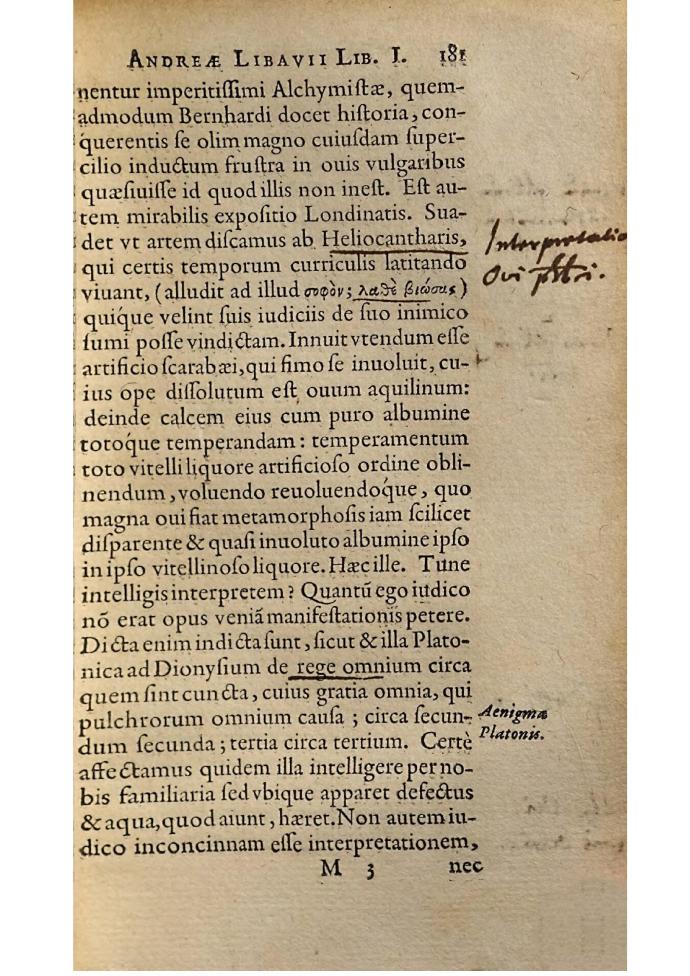 ANDREÆ LIBAVII LIB. I. 181
nentur imperitiſſimi Alchymiſtæ, quem-
admodum Bernhardi docet hiſtoria, con-
querentis ſe olim magno cuiuſdam ſuper-
cilio inductum fruſtra in ouis vulgaribus
quæſiuiſſe id quod illis non ineſt. Eſt au-
tem mirabilis expoſitio Londinatis. Sua-
det vt artem diſcamus ab Heliocantharis,
Interpretatio
qui certis temporum curriculis latitando
Ovi
viuant, (alludit ad illud σοφὸν; λαθὲ βιώσας)
quíque velint ſuis iudiciis de ſuo inimico
ſumi poſſe vindictam. Innuit vtendum eſſe
artificio ſcarabæi, qui fimo ſe inuoluit, cu-
ius ope diſſolutum eſt ouum aquilinum:
deinde calcem eius cum puro albumine
totóque temperandam: temperamentum
toto vitelli liquore artificioſo ordine obli-
nendum, voluendo reuoluendóque, quo
magna oui fiat metamorphoſis iam ſcilicet
diſparente & quaſi inuoluto albumine ipſo
in ipſo vitellinoſo liquore. Hæc ille. Tune
intelligis interpretem? Quantũ ego iudico
nõ erat opus veniã manifeſtationis petere.
Dicta enim indicta ſunt, ſicut & illa Plato-
nica ad Dionyſium de rege omnium circa
quem ſint cuncta, cuius gratia omnia, qui
pulchrorum omnium cauſa; circa ſecun-
Aenigma
dum ſecunda; tertia circa tertium. Certè
Platonis.
affectamus quidem illa intelligere per no-
bis familiaria ſed vbique apparet defectus
& aqua, quod aiunt, hæret. Non autem iu-
dico inconcinnam eſſe interpretationem,
M 3 nec